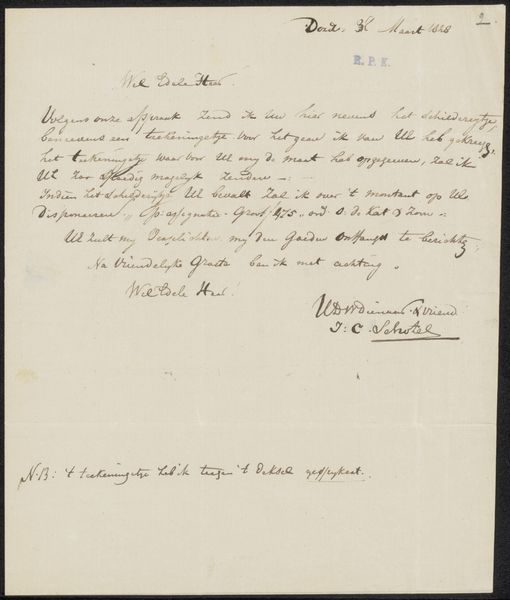 Dord. Maart 1828
2
R.P.K.
Wel Edele Heer.
Volgens onze afspraak zend ik Uw hier nevens het schilderijtje,
benevens een teekeningetje voor het geen ik van Ul heb gekregen,
het teekeningetje waar voor Ul my de maat heb opgegeven, zal ik
Ul zoo spoedig mogelyk zenden
Indien het schilderijtje Ul bevalt zal ik over 't montant op Ul
Disponeren p. assignatie Groot ƒ 75 ord
Ul zult my verplichten my den Goeden ontfangst te berichten
Na Vriendelyke Groete ben ik met achting
Wel Edele Heer!
UDWDienaar & Vriend
J: C. Schotel
N.B: 't teekeningetje heb ik tegen 't deksel gespykert.